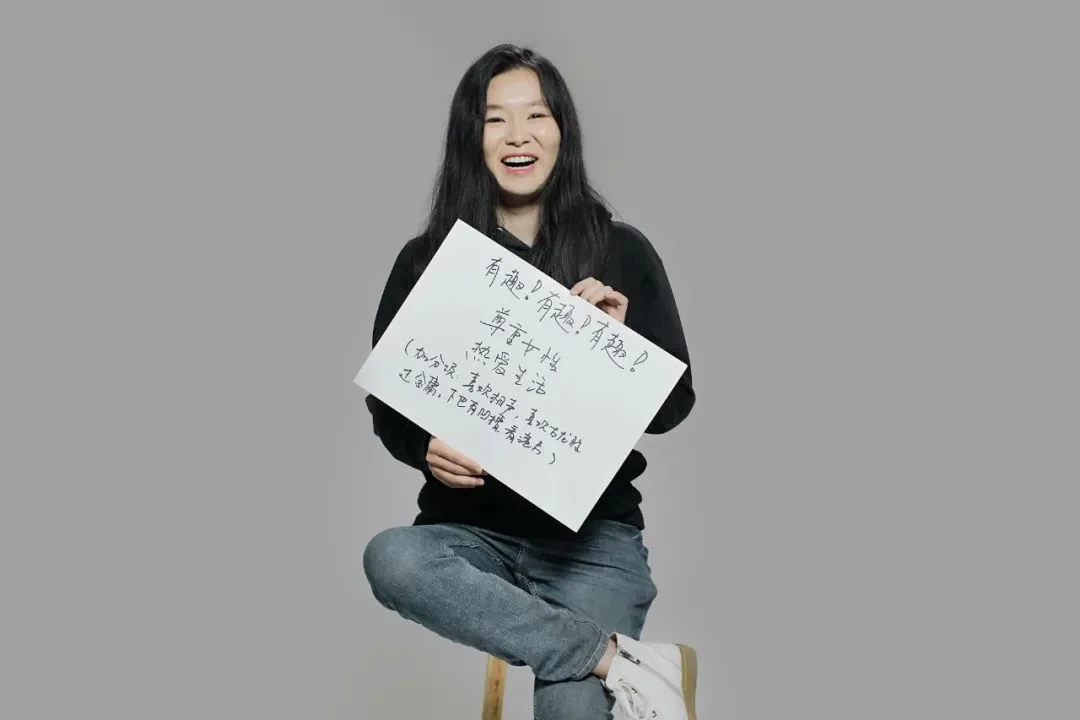 有趣!有趣!有趣!
尊重女性
热爱生活
(加分项:喜欢相声,喜欢古龙胜
过金庸,下巴有凹槽,看港片)